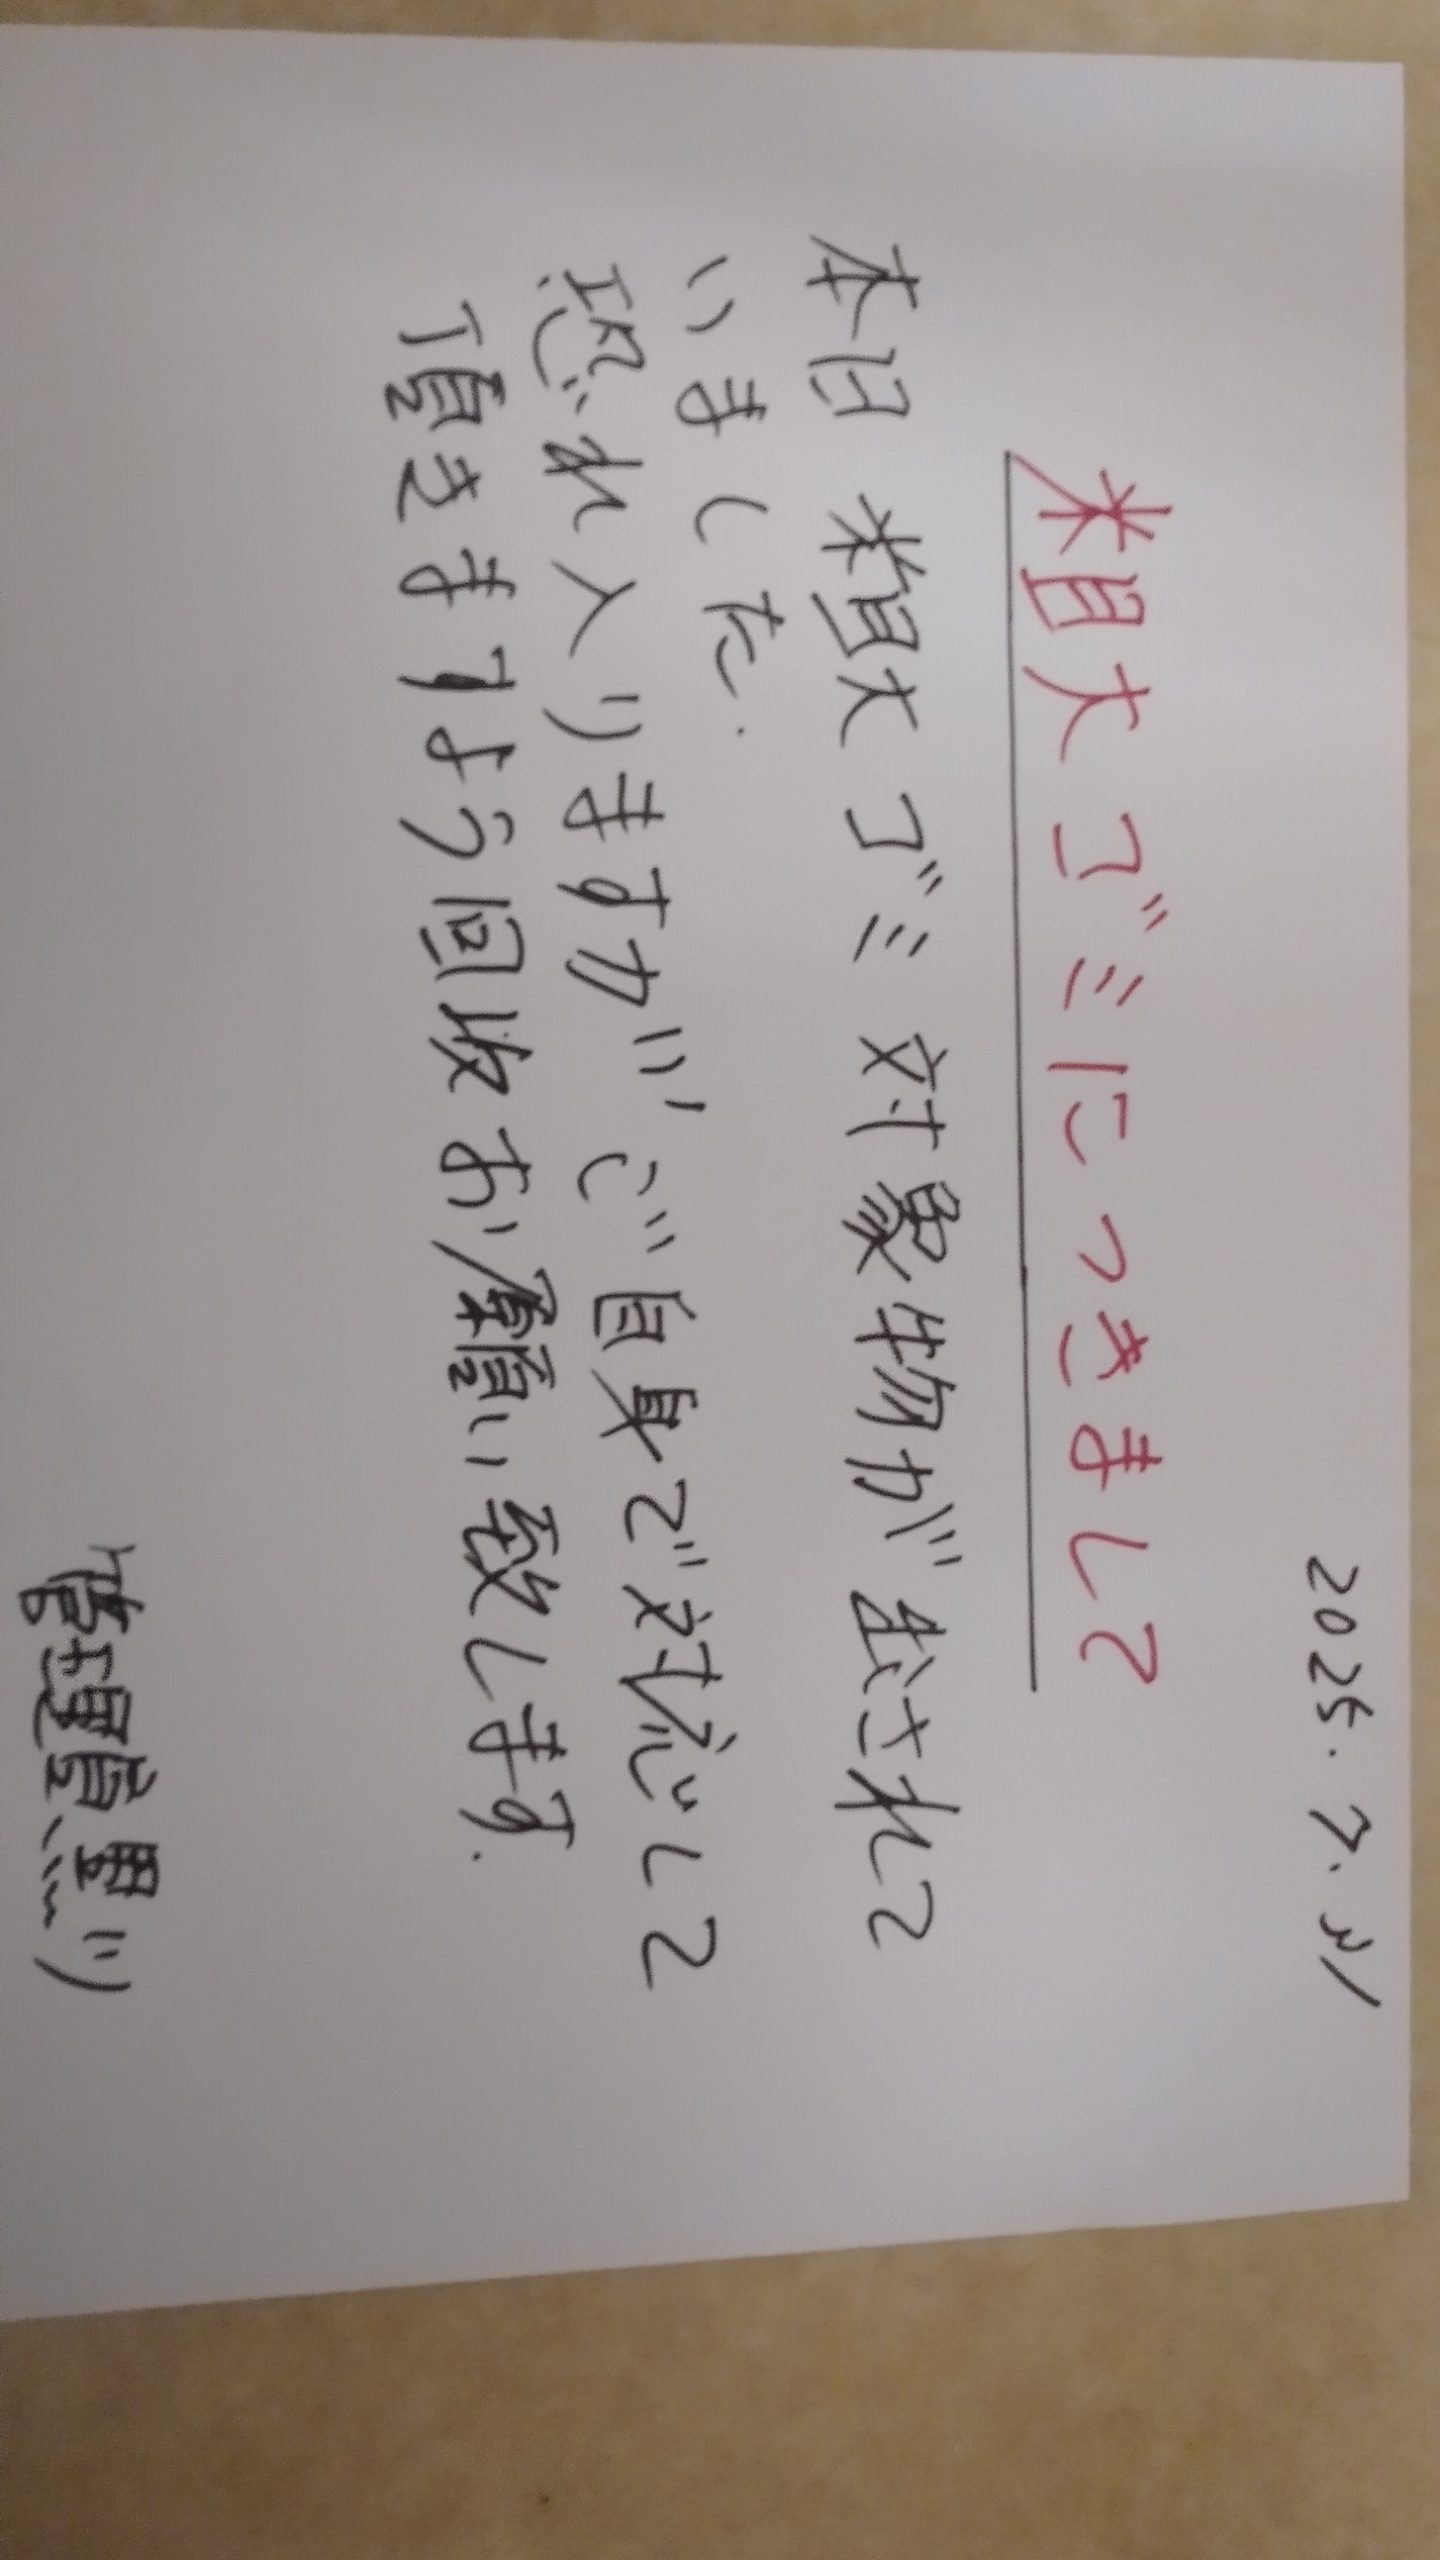 2025.7.21
粗大ゴミにつきまして
本日 粗大ゴミ対象物が出されて
いました.
恐れ入りますが、ご自身で対応して
頂きますよう回収お願い致します.
管理員黒ソ